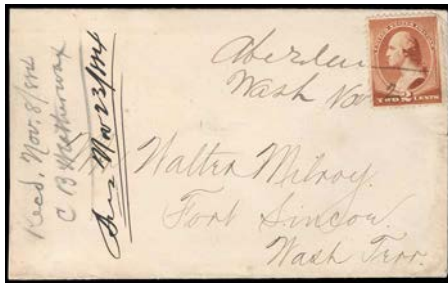 Recd. Nov. 8/84
C B
Ans Nov 23/84
Aberdeen
Wash Nov
TWO 2 CENTS
Walter Milroy.
Fort Simcoe.
Wash Terr.